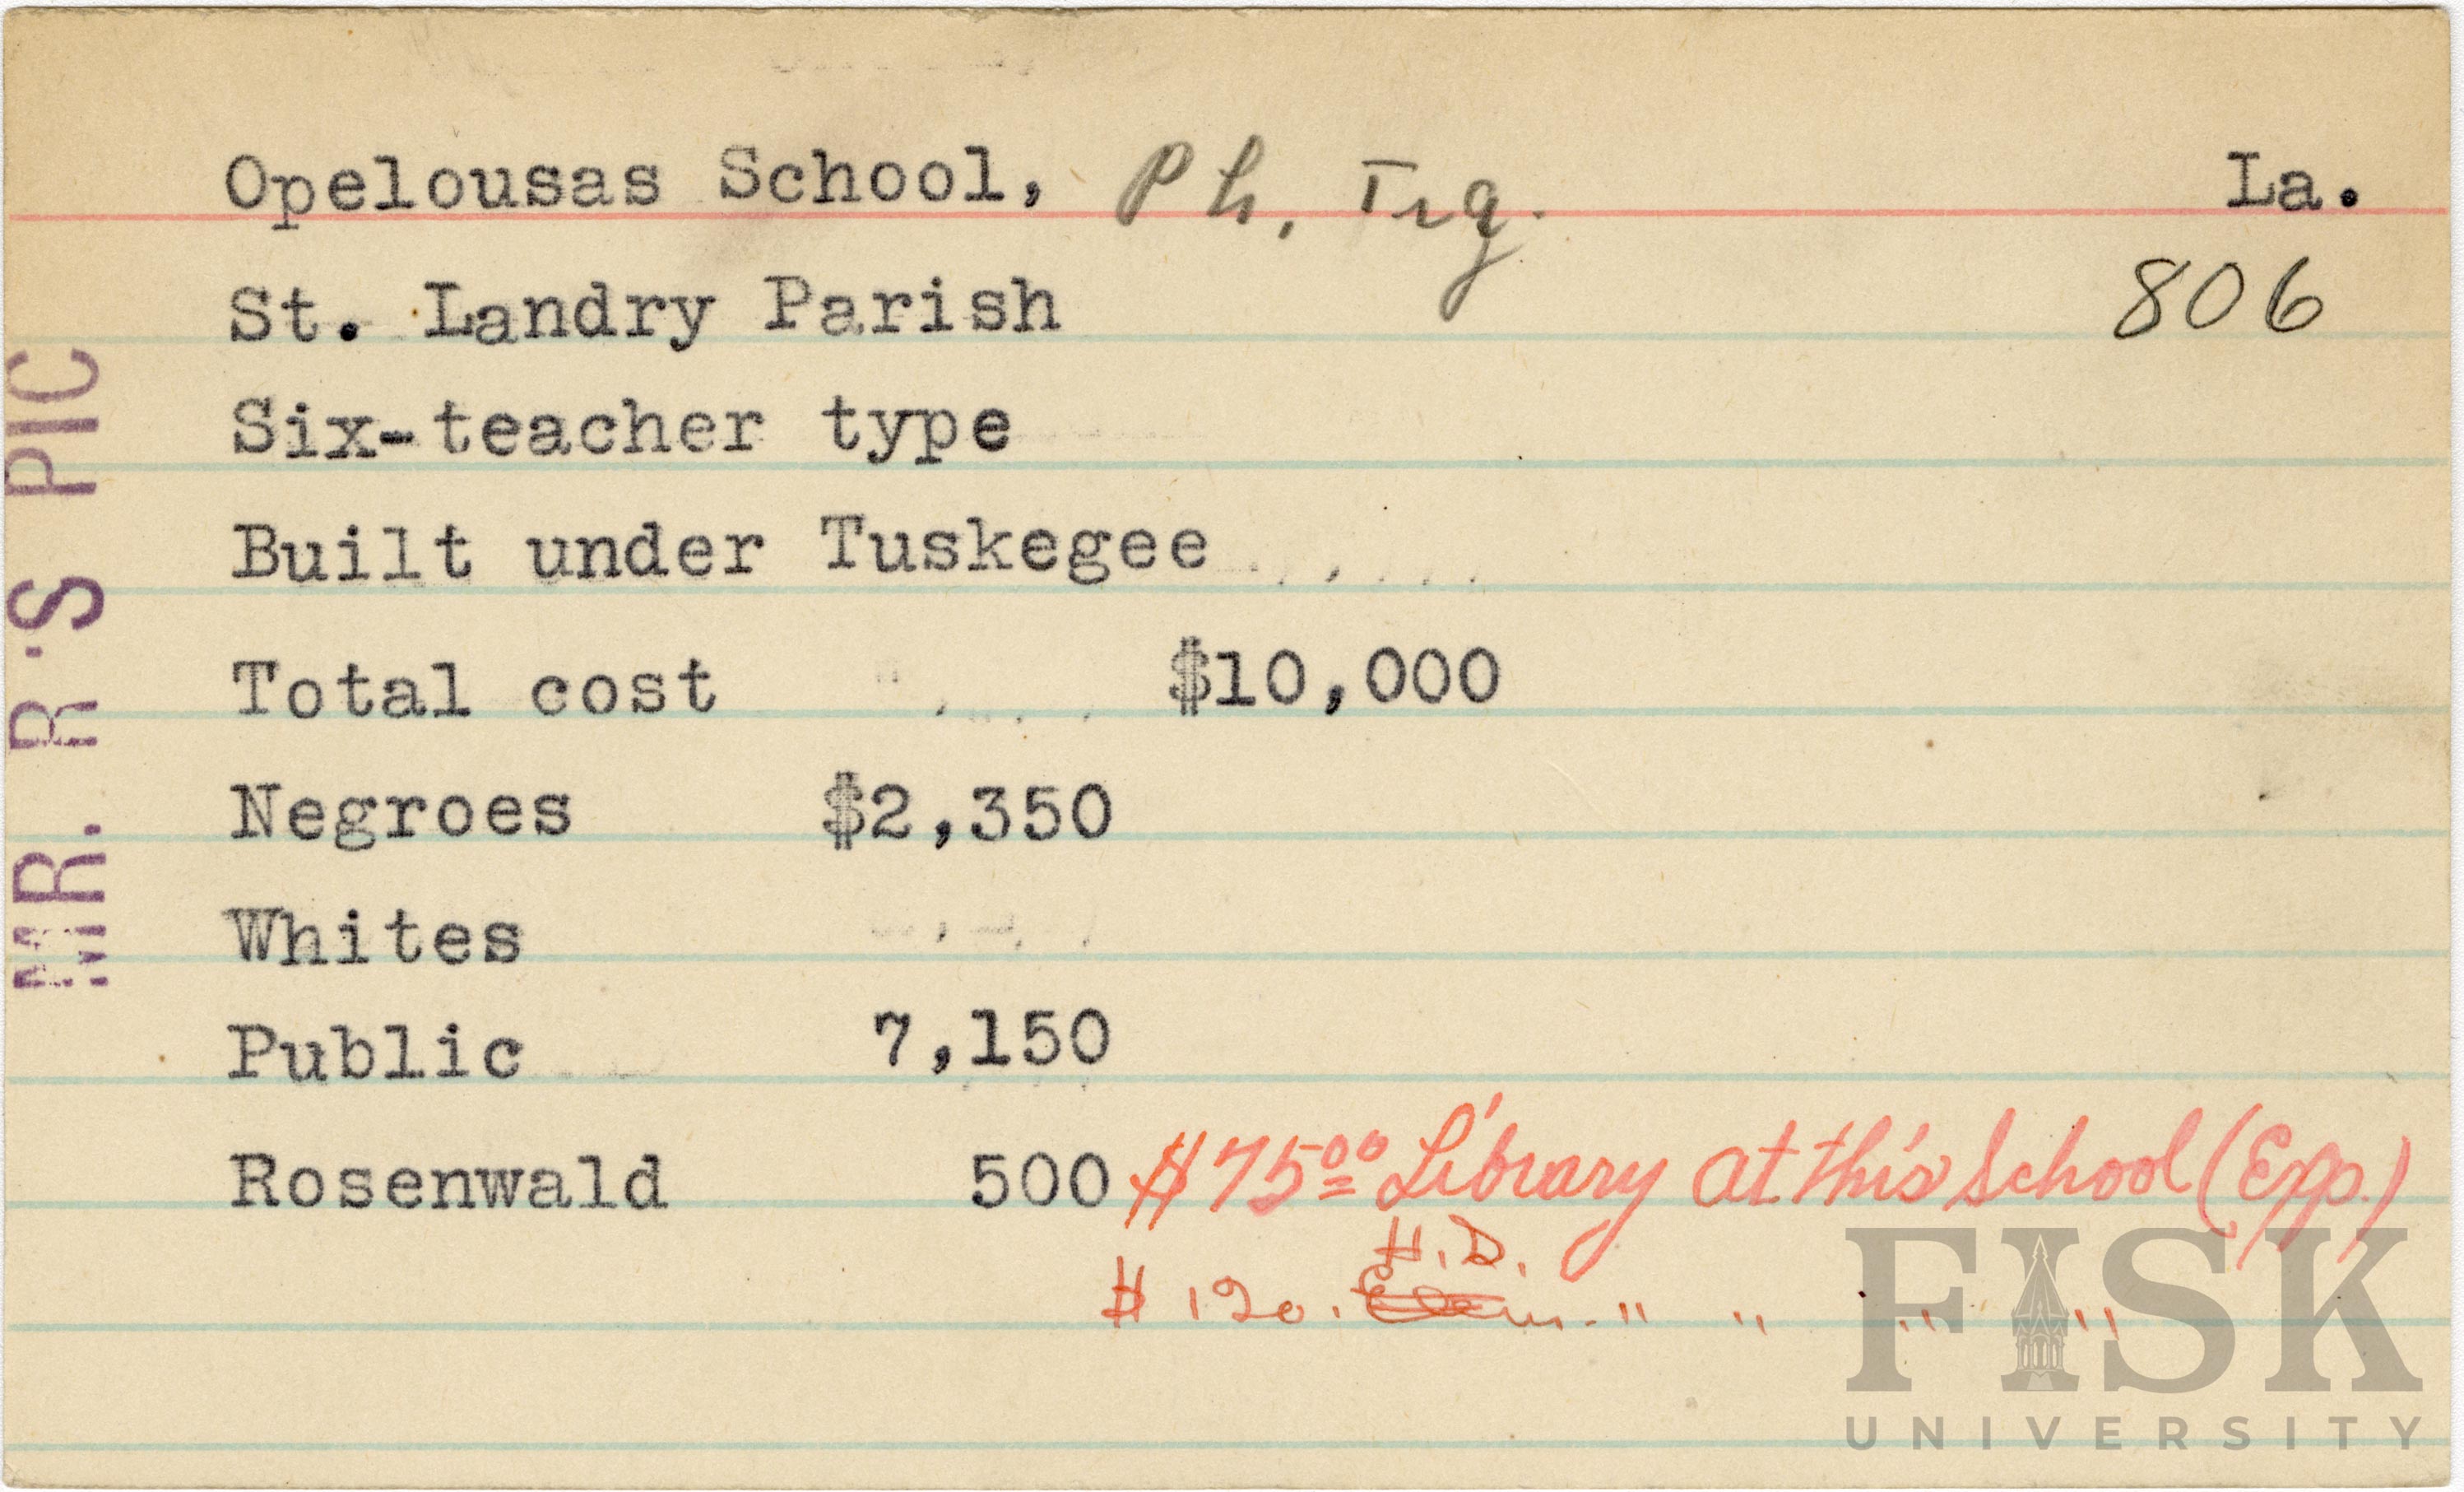 Opelousas School, Ph. Trg. La.
St. Landry Parish 806
Six-teacher type
Built under Tuskegee
Total cost $10,000
Negroes $2,350
Whites
Public 7,150
Rosenwald 500 $75.00 Library at this School (Exp.)
H.S.
$ 120. Elem. " " " "
MR. R'S PIC
FISK
UNIVERSITY